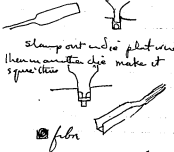 stamp out in die flat wire
then another die make it
square thus
fibre